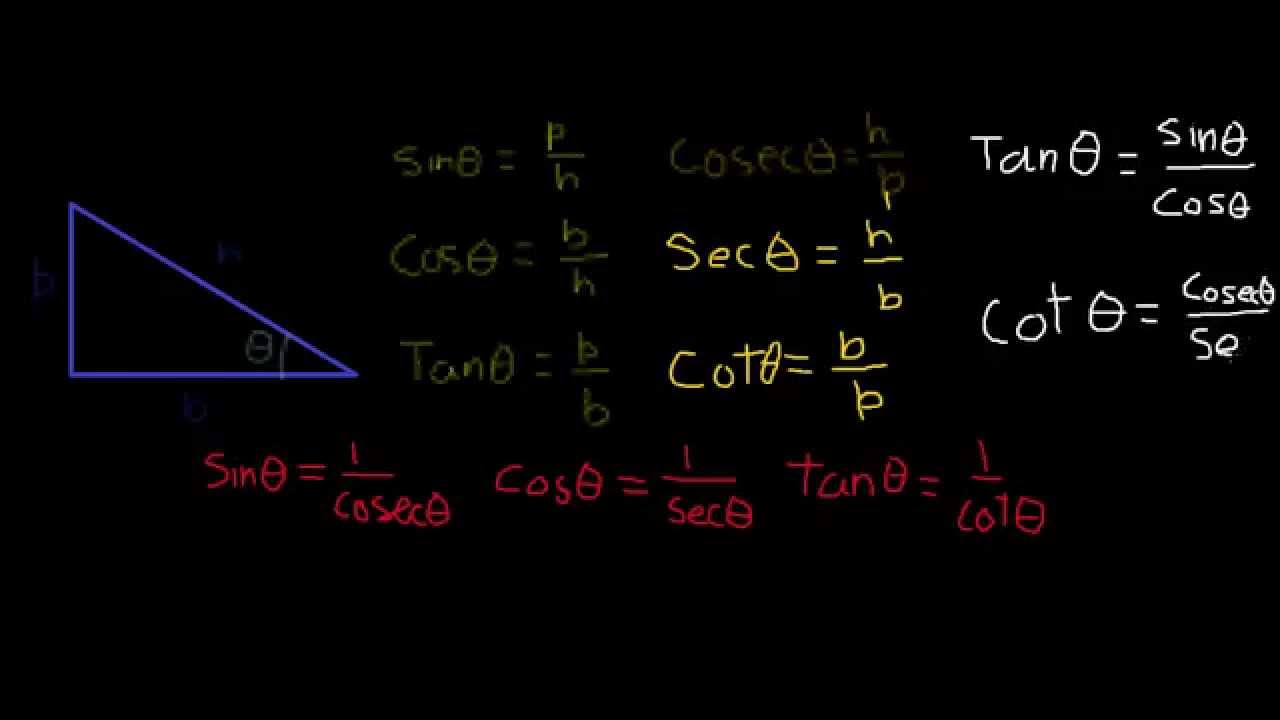 p
h
b
θ
sinθ = p/h
Cosecθ = h/p
Tanθ = sinθ/cosθ
Cosθ = b/h
Secθ = h/b
Cot θ = cosecθ/Se
Tanθ = p/b
Cotθ = b/p
Sinθ = 1/cosecθ
Cosθ = 1/secθ
tanθ = 1/cotθ